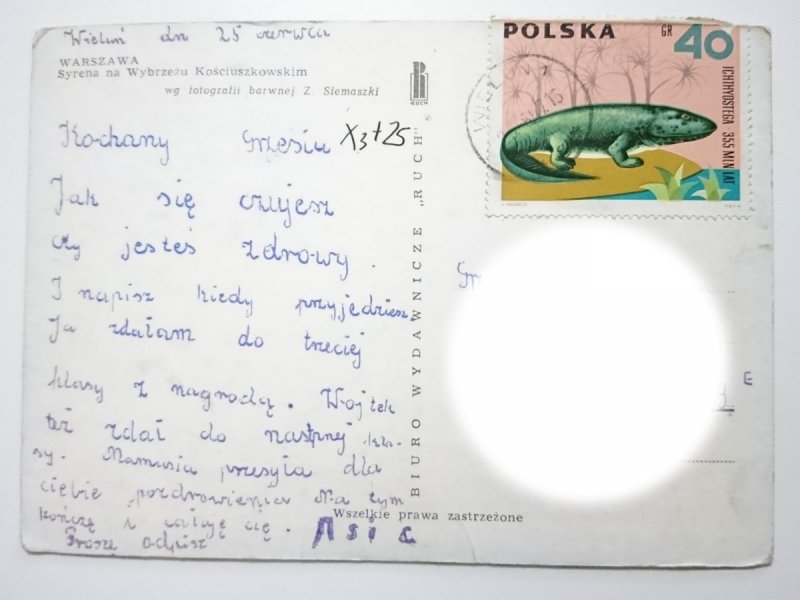 Wieluń dn 25 czerwca
WARSZAWA
Syrena na Wybrzeżu Kościuszkowskim
wg fotografii barwnej Z. Siemaszki
RUCH
Kochany Grzesiu
X3+25
Jak się czujesz
czy jesteś zdrowy.
I napisz kiedy przyjedziesz.
Ja zdałam do trzeciej
klasy z nagrodą. Wojtek
też zdał do nastpnej kla-
sy. Mamusia przesyła dla
ciebie pozdrowienia Na tym
kończę i całuję cię.
Proszę odpisz
Asia
Wszelkie prawa zastrzeżone
BIURO WYDAWNICZE „RUCH"
POLSKA
GR 40
ICHTHYOSTEGA 355 MLN LAT
Gr
E